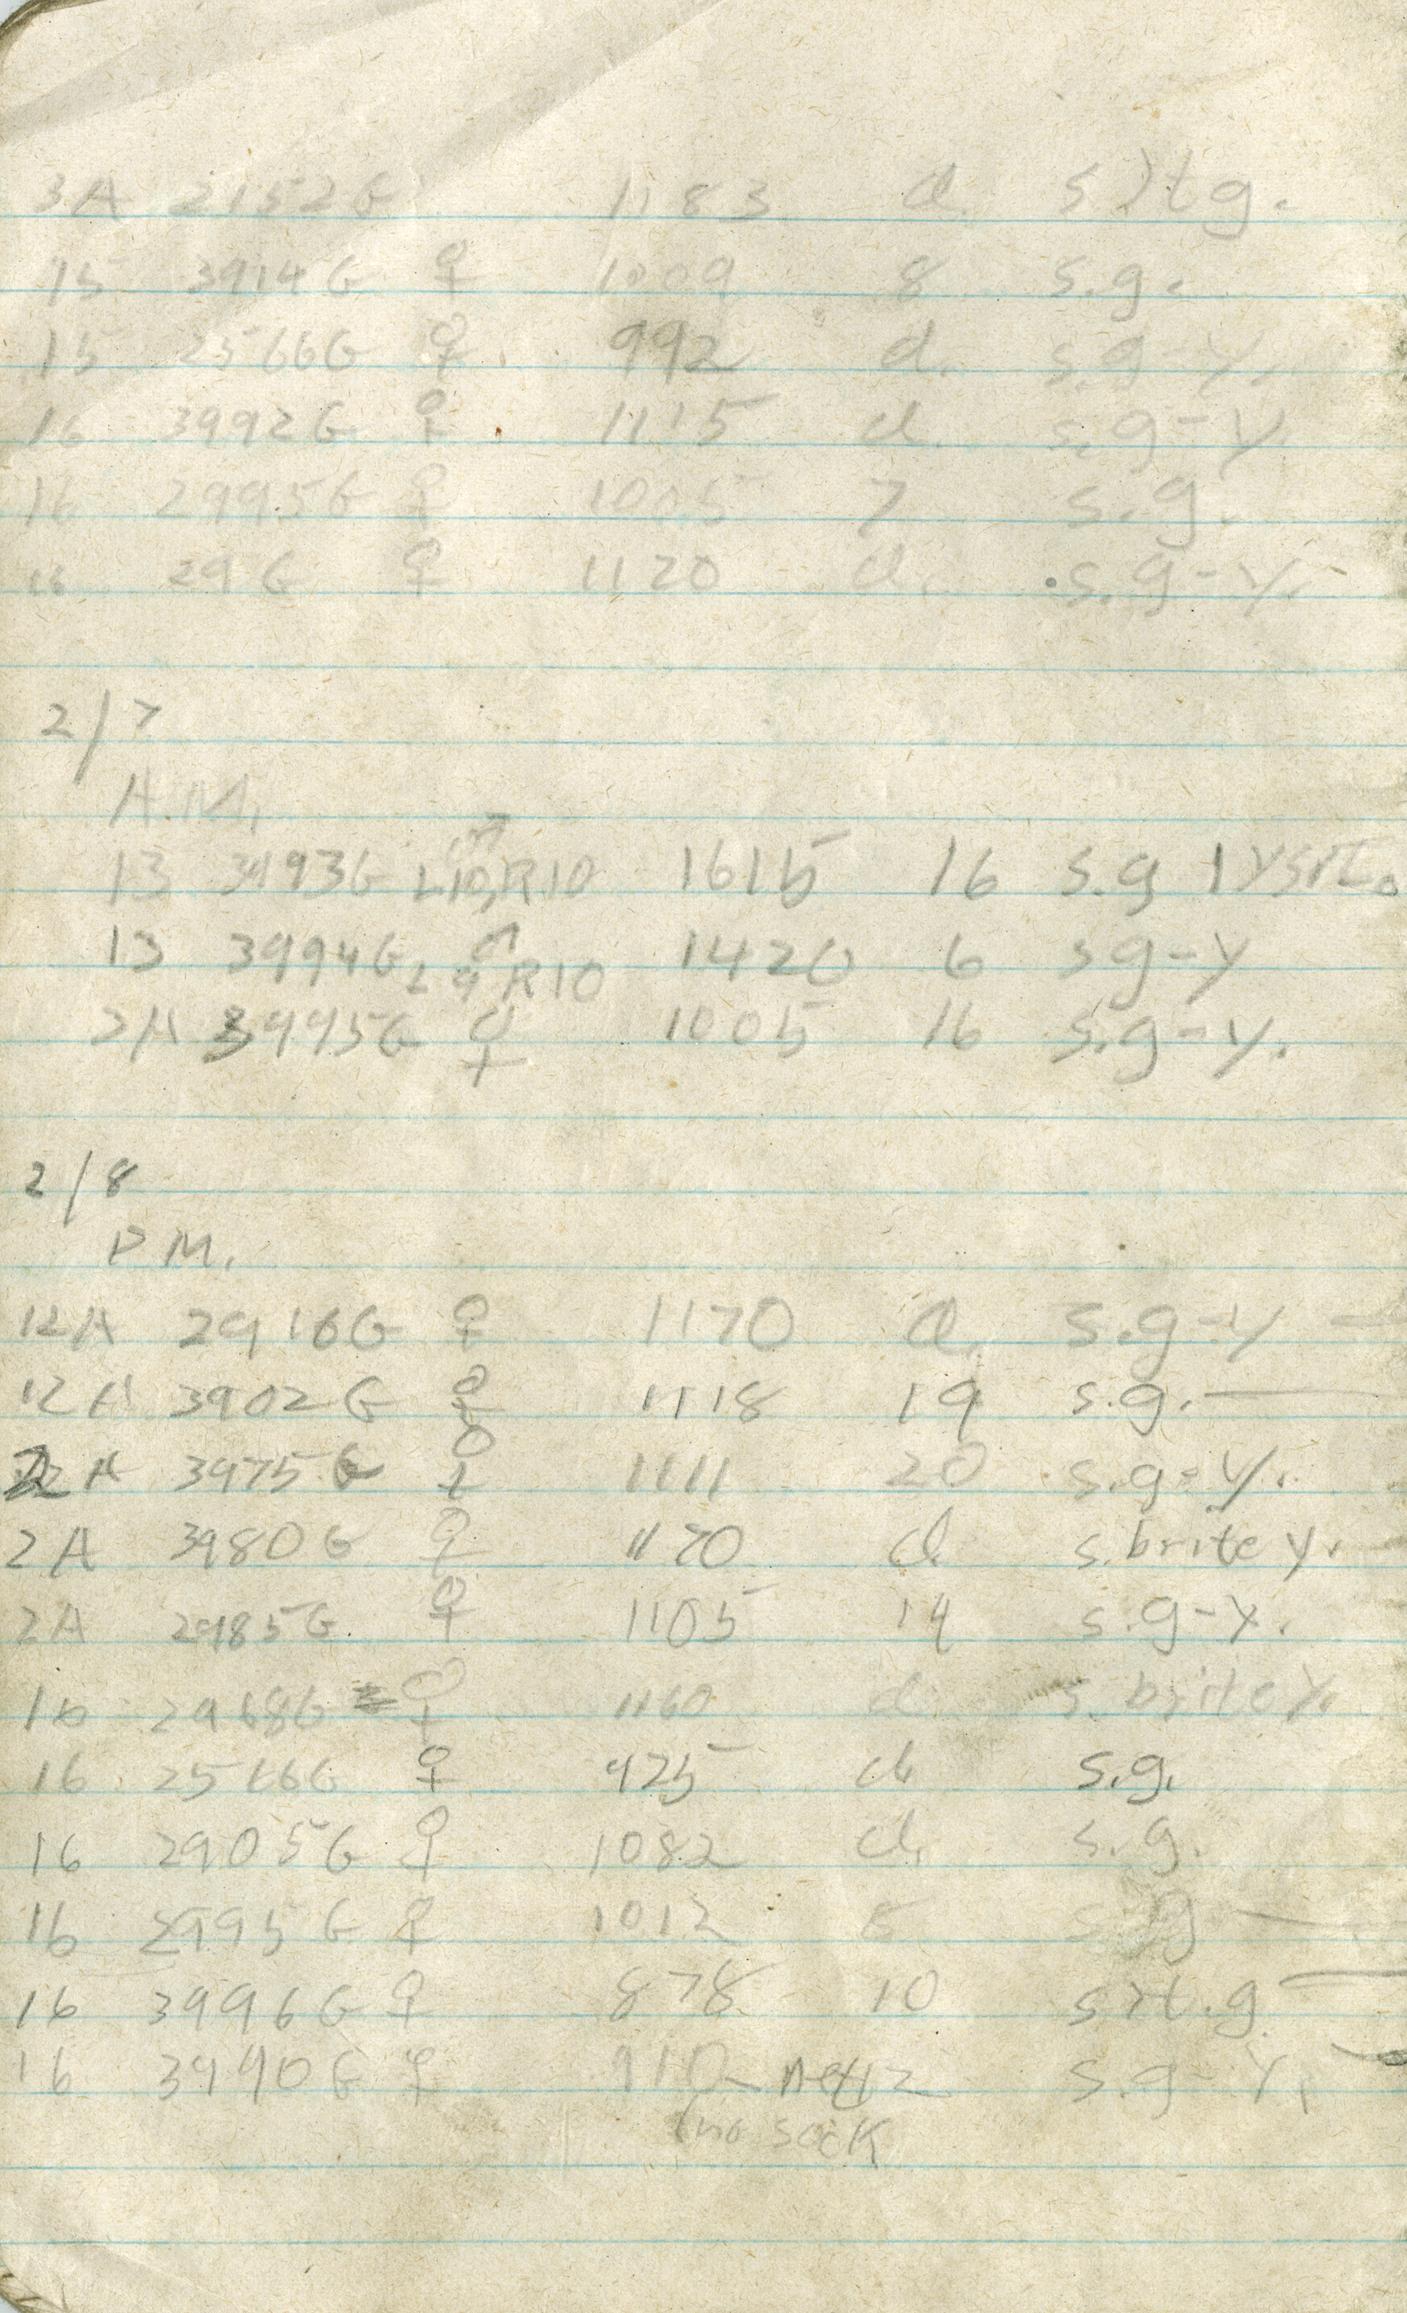 3A 2152G 1183 d. s lt g.
15 3914G ♀ 1009 8 s.g.
15 2566G ♀ 992 d. s.g-y.
16 3992G ♀ 1115 d. s.g-y.
16 2995G ♀ 1005 7 s.g.
16 29G ♀ 1120 d. s.g-y.
2/7
A.M.
13 3993G ♂ L10,R10 1615 16 s.g
13 3994G ♂ L9 R10 1420 6 s g-y
2A 3995G ♀ 1005 16 s.g-y.
2/8
P.M.
12A 2916G ♀ 1170 d. s.g-y —
12A 3902G ♀ 1118 19 s.g. —
2A 3975G ♀ 1111 20 s.g-y.
2A 3980G ♀ 1170 d. s.brite y.
2A 2985G ♀ 1105 14 s.g-y.
16 2968G ♀ 1160 d. s.brite y.
16 2566G ♀ 925 d. s.g.
16 2905G ♀ 1082 d. s.g.
16 2995G ♀ 1012 5 s.g —
16 3996G ♀ 878 10 s lt.g —
16 3990G ♀ 910 net 12 s.g-y. —
(no sock